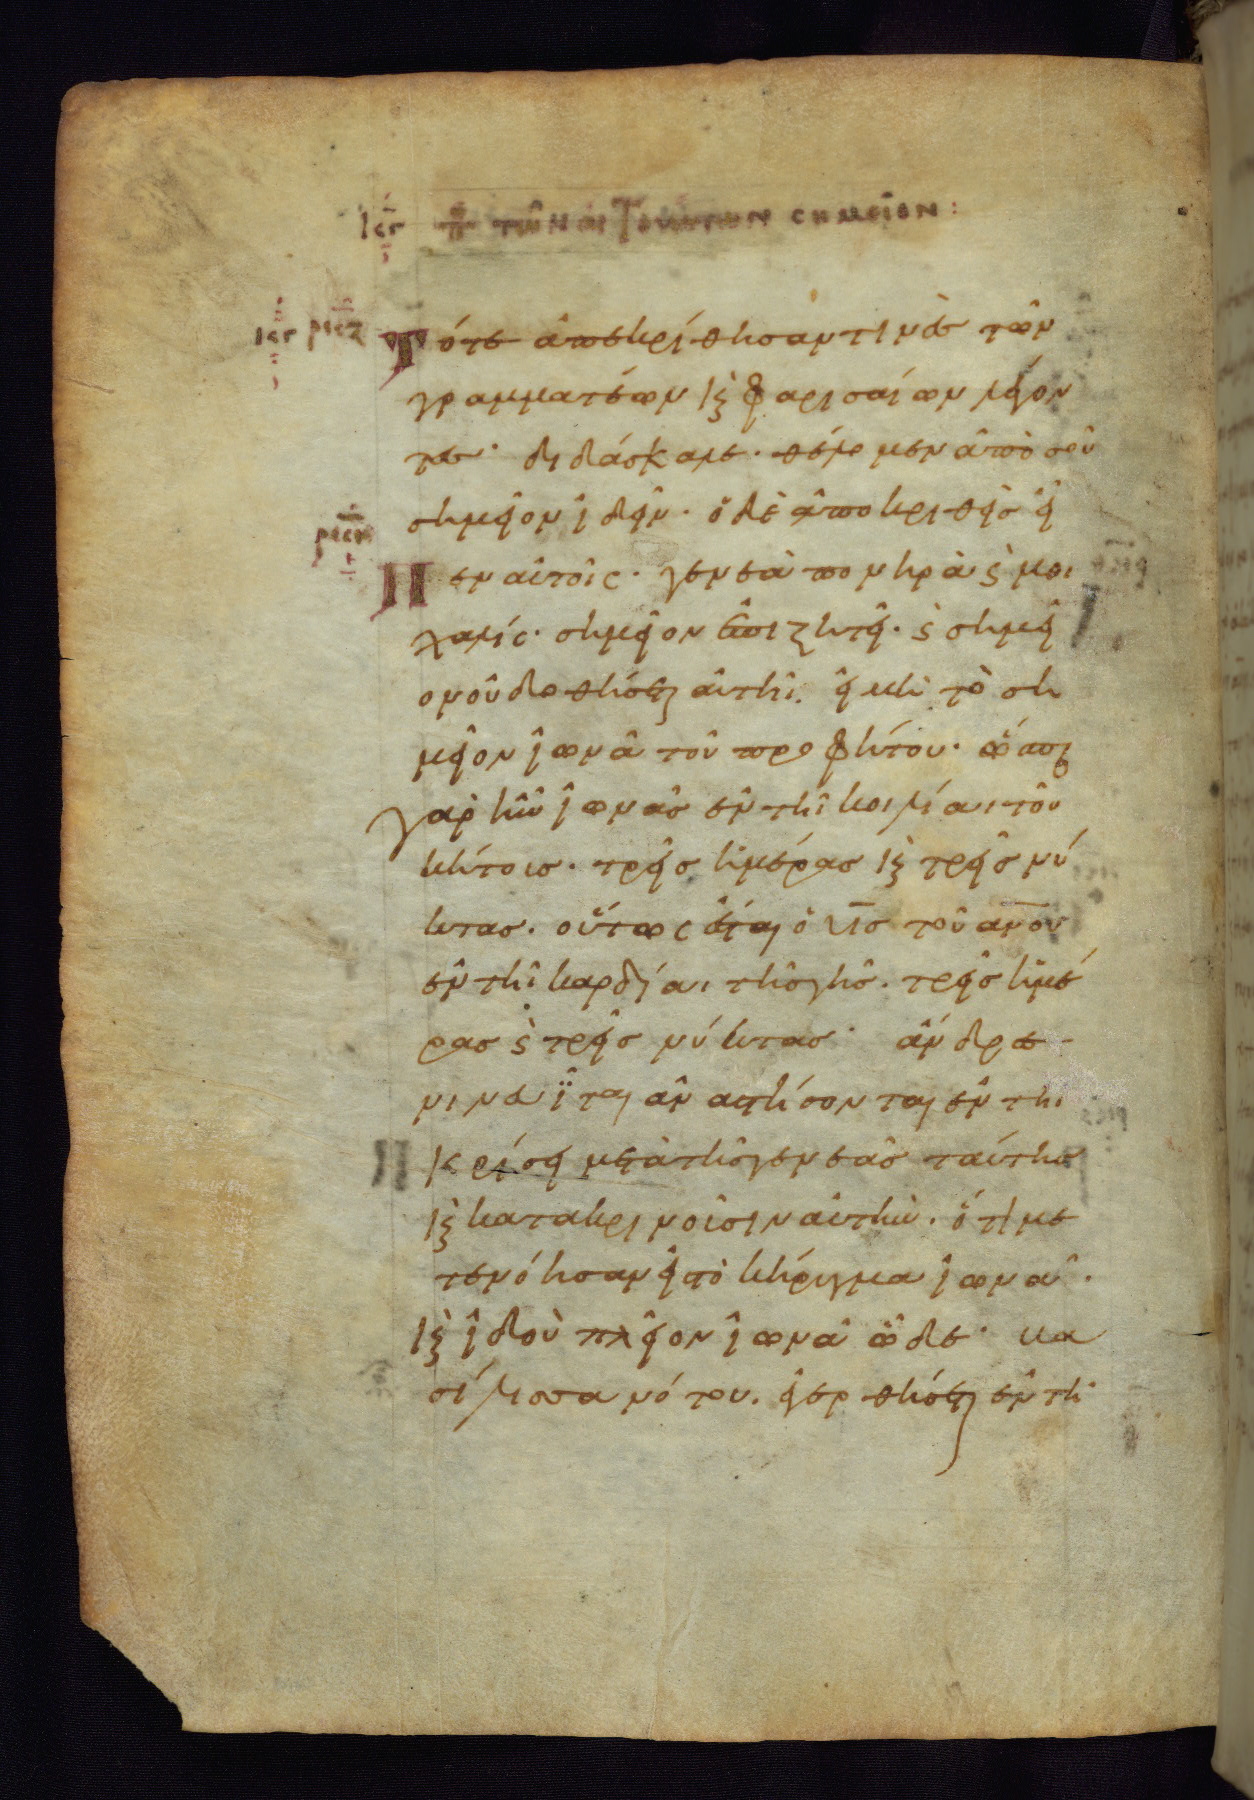 π τῶν αἰτούντων σημεῖον:
Τότε ἀπεκρίθησαν τινὲσ τῶν
γραμματέων κ̀ φαρισαίων λέγον
τεσ· διδάσκαλε· θέλομεν ἀπὸ σοῦ
σημεῖον ἰδεῖν· ὁ δὲ ἀποκριθεὶσ εἶ
πεν αὐτοῖς· γενεὰ πονηρὰ κ̀ μοι
χαλίς· σημεῖον ἐπιζητεῖ· κ̀ σημεῖ
ον οὐ δοθήσεται αὐτῆι· εἰ μὴ τὸ ση
μεῖον ἰωνᾶ τοῦ προφήτου· ὥσπερ
γὰρ ἦν ἰωνᾶσ ἐν τῆι κοιλίαι τοῦ
κήτουσ· τρεῖσ ἡμέρασ κ̀ τρεῖσ νύ
κτασ· οὕτως ἔσται ὁ υ̅σ̅ τοῦ α̅ν̅ο̅υ̅
ἐν τῆι καρδίαι τῆσ γῆσ· τρεῖσ ἡμέ
ρασ κ̀ τρεῖσ νύκτασ· ἄνδρεσ
νινευῖται ἀναστήσονται ἐν τῆι
κρίσει μετὰ τῆσ γενεᾶσ ταύτησ
κ̀ κατακρινοῦσιν αὐτήν· ὅτι με
τενόησαν εἰσ τὸ κήρυγμα ἰωνᾶ·
κ̀ ἰδοὺ πλεῖον ἰωνᾶ ὧδε· βα
σίλισσα νότου· ἐγερθήσεται ἐν τῆ